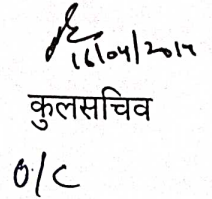 16/04/2014
कुलसचिव
O/C